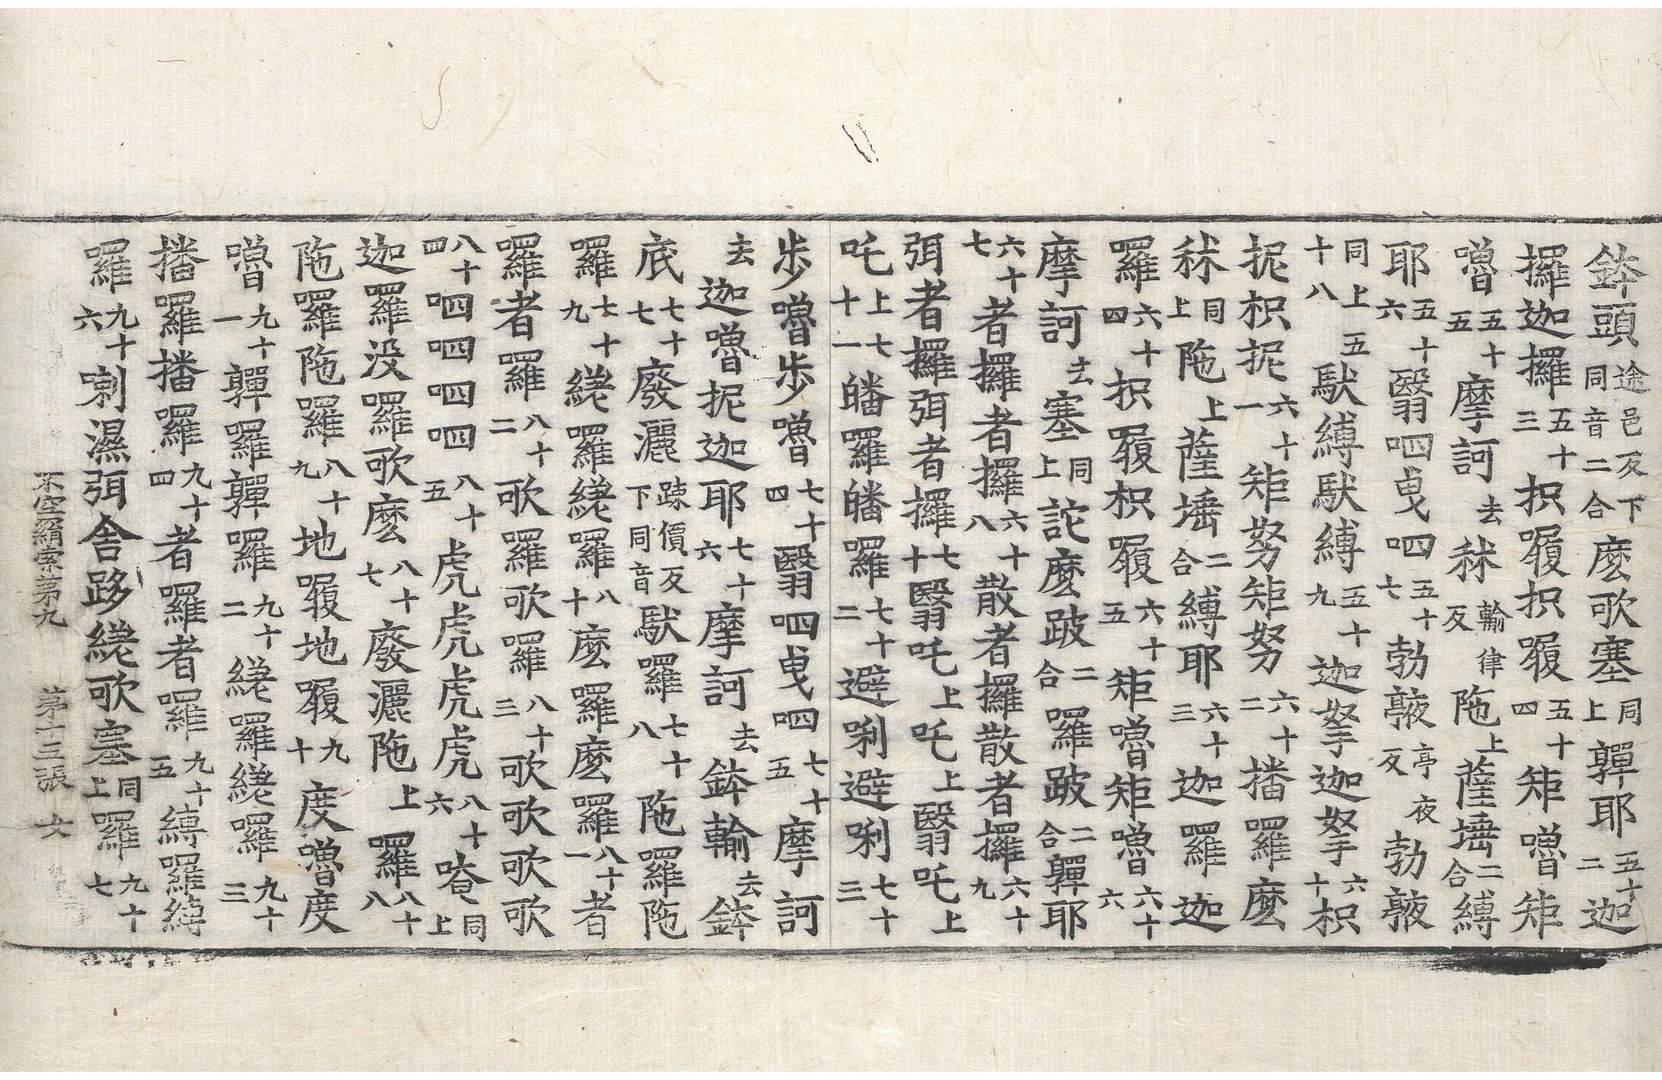 鉢頭途邑反下同音二合麽歌塞同上嚲耶五十二迦
攞迦攞五十三抧履抧履五十四矩嚕矩
嚕五十五摩訶去秫輪律反陁上薩埵二合縛
耶五十六翳呬曳呬五十七勃㰆亭夜反勃㰆
同上五十八馱縛馱縛五十九迦拏迦拏六十枳
抳枳抳六十一矩努矩努六十二播羅麽
秫同上陁上薩埵二合縛耶六十三迦羅迦
羅六十四枳履枳履六十五矩嚕矩嚕六十六
摩訶去塞同上詑麽跛二合羅跛二合嚲耶
六十七者攞者攞六十八散者攞散者攞六十九
弭者攞弭者攞七十翳吒上吒上翳吒上
吒上七十一皤羅皤羅七十二避唎避唎七十三
步嚕步嚕七十四翳呬曳呬七十五摩訶
去迦嚕抳迦耶七十六摩訶去鉢輸去鉢
底七十七廢灑踈價反下同音馱羅七十八陁羅陁
羅七十九縒羅縒羅八十麽羅麽羅八十一者
羅者羅八十二歌羅歌羅八十三歌歌歌歌
八十四呬呬呬呬八十五虎虎虎虎八十六唵同上
迦羅没羅歌麽八十七廢灑陁上羅八十八
陁羅陁羅八十九地履地履九十度嚕度
嚕九十一嚲羅嚲羅九十二縒羅縒羅九十三
播羅播羅九十四者羅者羅九十五縛羅縛
羅九十六喇濕弭舎跢縒歌塞同上羅九十七
不空羂索第九 第十三張 女